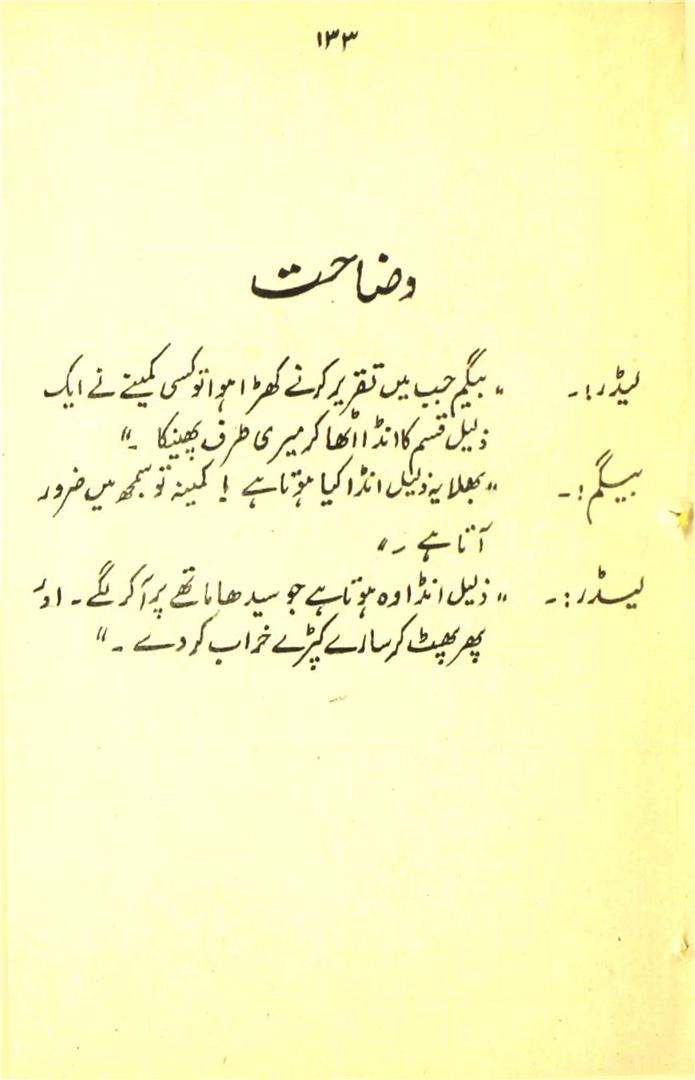 ۱۳۳
وضاحت
لیڈر:۔ "بیگم جب میں تقریر کرنے کھڑا ہوا تو کسی کمینے نے ایک
ذلیل قسم کا انڈا اٹھا کر میری طرف پھینکا ۔"
بیگم:۔ "بھلا یہ ذلیل انڈا کیا ہوتا ہے ! کمینہ تو سمجھ میں ضرور
آتا ہے ۔"
لیڈر:۔ "ذلیل انڈا وہ ہوتا ہے جو سیدھا ماتھے پر آ کر لگے ۔ اور
پھر پھٹ کر سارے کپڑے خراب کر دے ۔"